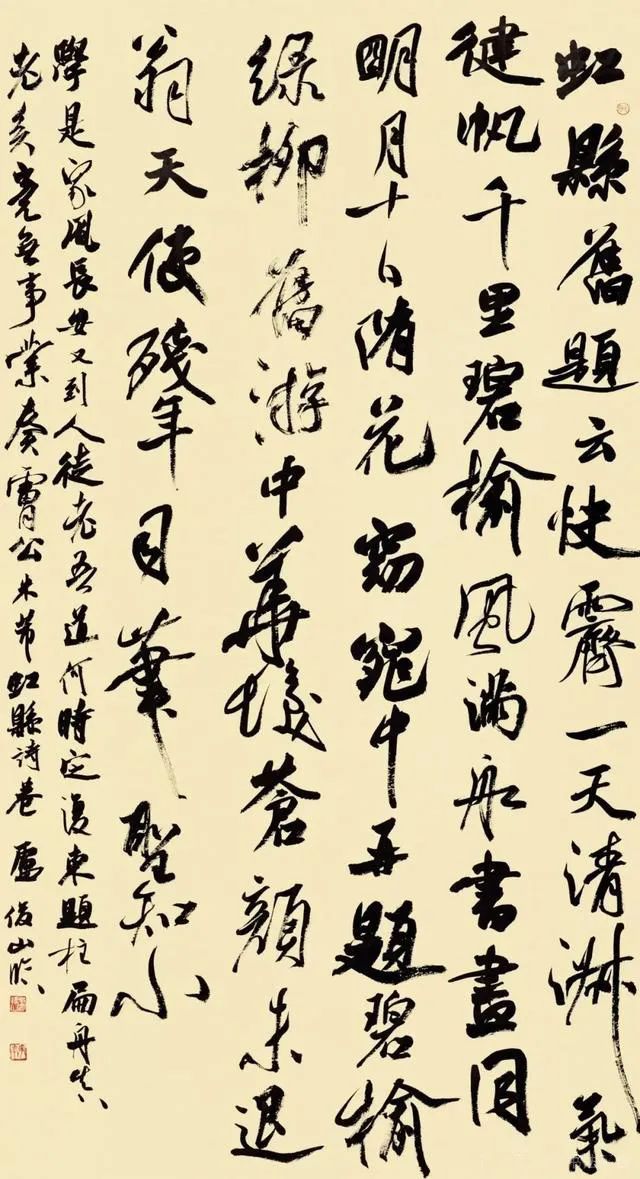 虹縣舊題云快霽一天清淑氣
健帆千里碧榆風滿船書畫同
明月十日隋花窈窕中再題碧榆
綠柳舊游中華髮蒼顏未退
翁天使殘年司筆聖知小
學是家風長安又到人徒老吾道何時定復東題柱扁舟真
老矣竟無事業奏膚公米芾虹縣詩卷盧俊山臨